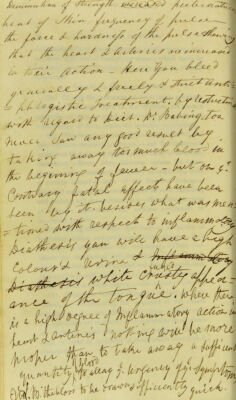 Diminution of Strength increased
heat of Skin frequency of pulse
the force & hardness of the pulse shewing
that the heart & Arteries are increased
in their Action – Here You bleed
generally & freely & strict Anti-
phlogistic Treatment, by restriction
with regard to diet. Dr Babington
never saw any good result by
taking away too much blood in
the beginning of fever – but on ye
Contrary fatal effects have been
seen by it. besides what was men
=tioned with respect to inflammatory
Diathesis you will have a high
Colour'd Urine &
white Crusty appear-
ance of the tongue. Where there
is a high degree of Inflammatory action in
heart & arteries nothing will be more
proper than to take away a sufficient
quantity of blood urgency of symptoms
the blood to be drawn sufficiently quick.